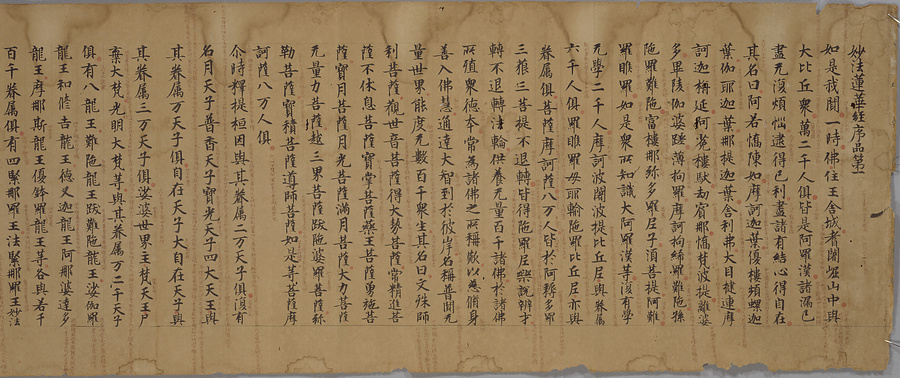 妙法蓮華經序品第一
如是我聞一時佛住王舍城耆闍崛山中與
大比丘衆萬二千人俱皆是阿羅漢諸漏已
盡无復煩惱逮得已利盡諸有結心得自在
其名曰阿若憍陳如摩訶迦葉優樓頻螺迦
葉伽耶迦葉那提迦葉舍利弗大目揵連摩
訶迦稱延阿㝹樓馱劫賓那憍梵波提離婆
多畢陵伽婆蹉薄拘羅摩訶拘絺羅難陁孫
陁羅難陁富樓那弥多羅尼子湏菩提阿難
羅睺羅如是衆所知識大阿羅漢等復有學
无學二千人摩訶波闍波提比丘尼與眷属
六千人俱羅睺羅母耶輸陁羅比丘尼亦與
眷属俱菩薩摩訶薩八万人皆於阿耨多羅
三藐三菩提不退轉皆得陁羅尼樂說辨才
轉不退轉法輪供養无量百千諸佛於諸佛
所殖衆德本常為諸佛之所稱歎以慈脩身
善入佛慧通達大智到於彼岸名稱普聞无
量世界能度无數百千衆生其名曰文殊師
利菩薩觀世音菩薩得大勢菩薩常精進菩
薩不休息菩薩寶掌菩薩藥王菩薩勇施菩
薩寶月菩薩月光菩薩滿月菩薩大力菩薩
无量力菩薩越三界菩薩跋陁婆羅菩薩弥
勒菩薩寶積菩薩導師菩薩如是等菩薩摩
訶薩八万人俱
尒時釋提桓因與其眷属二万天子俱復有
名月天子普香天子寶光天子四大天王與
其眷属万天子俱自在天子大自在天子與
其眷属三万天子俱娑婆世界主梵天王尸
棄大梵光明大梵等與其眷属万二千天子
俱有八龍王難陁龍王跋難陁龍王娑伽羅
龍王和脩吉龍王德叉迦龍王阿那婆達多
龍王摩那斯龍王優鉢羅龍王等各與若干
百千眷属俱有四緊那羅王法緊那羅王妙法